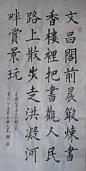 文昌阁前晨锻煉書
香樓裡把書觀人民
路上散步走洪凝河
畔賞景玩